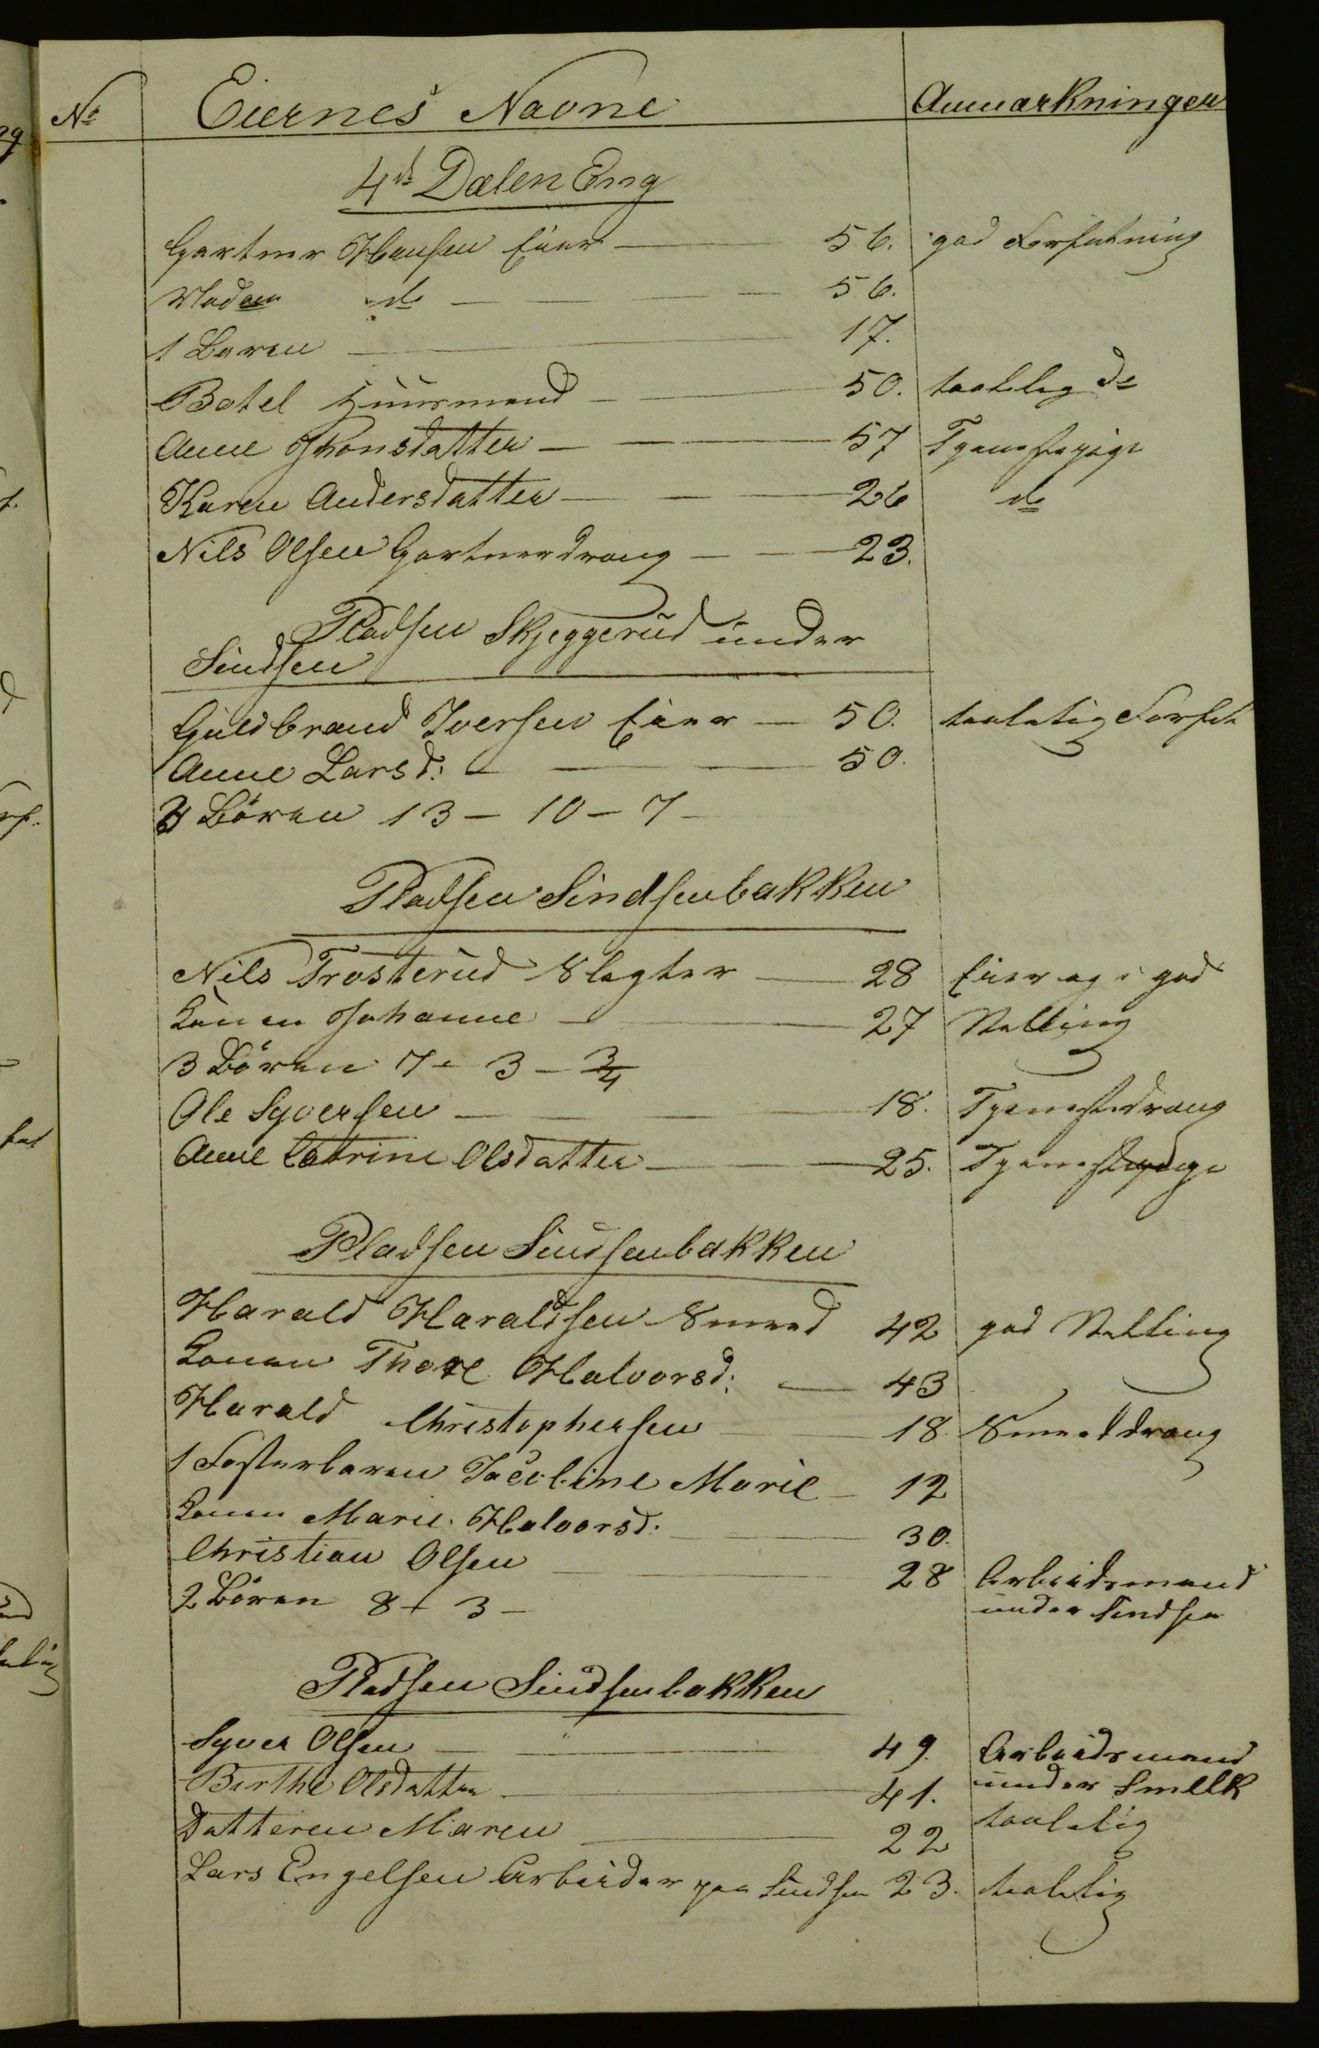 No Eiernes Navne Anmærkninger
4de Dælen Eng
Gartner Hansen Eier — 56. god Forfatning
Madam do — 56.
1 Baren — 17.
Botel Huusmand — 50. taalelig do
Anne Thonsdatter — 57 Tjenestepige
Karen Andersdatter — 26 do
Nils Olsen Gartnerdreng — 23.
Pladsen Skjeggerud under
Sindsen
Guldbrand Iversen Eier — 50. taalelig Forfat
Anne Larsd: — 50.
3 Bören 13 — 10 — 7 —
Pladsen Sindsenbakken
Nils Trosterud Slagter — 28 Eier og i god
Konen Johanne — 27 Stelling
3 Börn 7 - 3 - 3/4
Ole Syversen — 18. Tjenestedreng
Anne Catrine Olsdatter — 25. Tjenestepige
Pladsen Sindsenbakken
Harald Haraldsen Smed 42 god Stelling
Konen Thore Halvorsd: — 43
Harald Christophersen 18. Smeddreng
1 Fosterbaren Jacobine Marie — 12
Konen Marie Halvorsd. 30.
Christian Olsen 28 Arbeidsmand
2 Börn 8 - 3 — under Sindsen
Pladsen Sindsenbakken
Syver Olsen — 49. Arbeidsmand
Birthe Olsdatter — 41. under Smelk
Datteren Maren — 22 taalelig
Lars Engelsen Arbeider paa Sindsen 23. taalelig